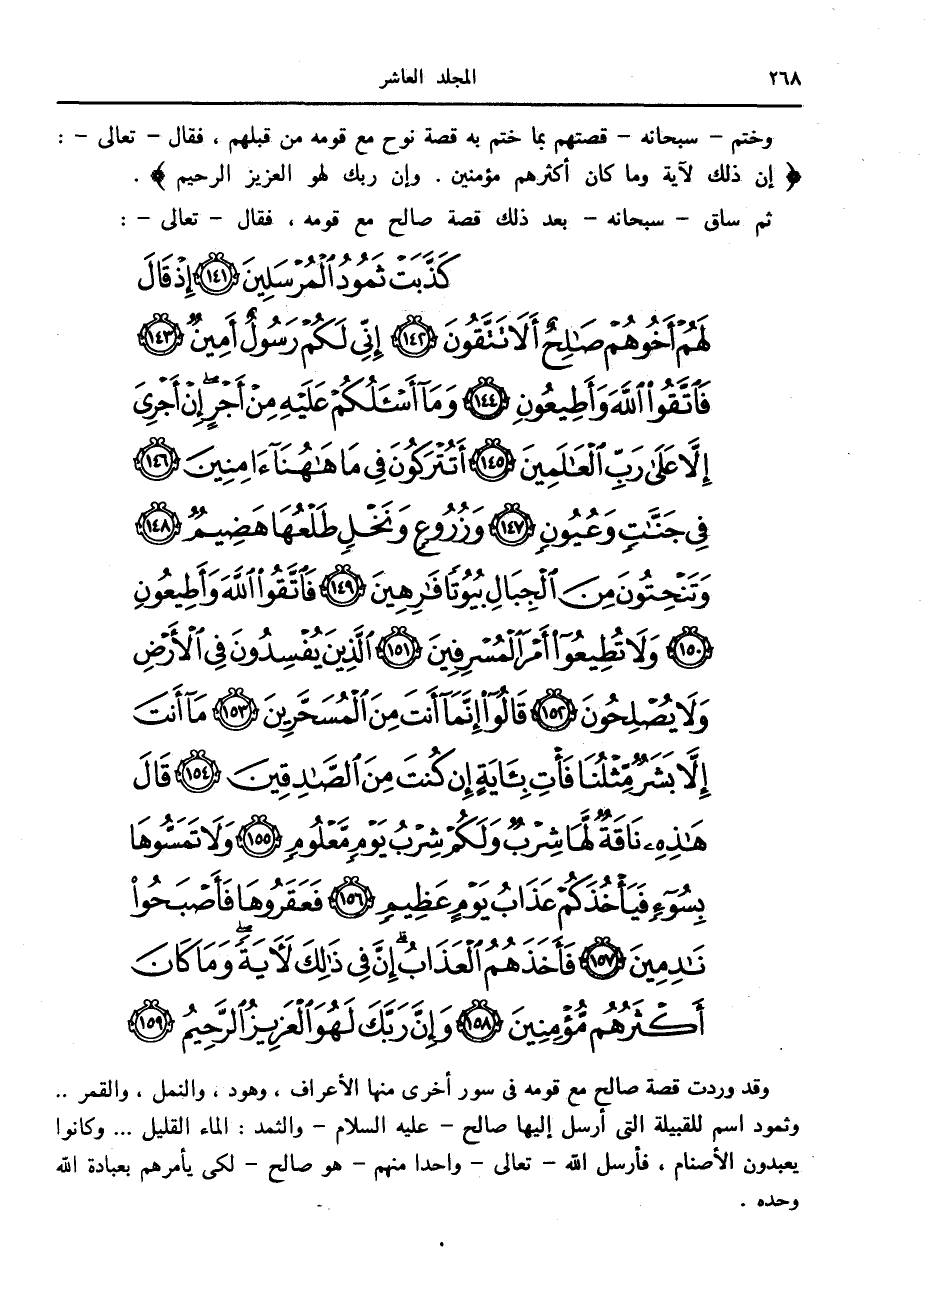 ٢٦٨ المجلد العاشر
وختم – سبحانه – قصتهم بما ختم به قصة نوح مع قومه من قبلهم ، فقال – تعالى – :
﴿ إن ذلك لآية وما كان أكثرهم مؤمنين . وإن ربك لهو العزيز الرحيم ﴾ .
ثم ساق – سبحانه – بعد ذلك قصة صالح مع قومه ، فقال – تعالى – :
كَذَّبَتْ ثَمُودُ ٱلْمُرْسَلِينَ ١٤١ إِذْ قَالَ
لَهُمْ أَخُوهُمْ صَٰلِحٌ أَلَا تَتَّقُونَ ١٤٢ إِنِّى لَكُمْ رَسُولٌ أَمِينٌ ١٤٣
فَٱتَّقُوا۟ ٱللَّهَ وَأَطِيعُونِ ١٤٤ وَمَآ أَسْـَٔلُكُمْ عَلَيْهِ مِنْ أَجْرٍ ۖ إِنْ أَجْرِىَ
إِلَّا عَلَىٰ رَبِّ ٱلْعَٰلَمِينَ ١٤٥ أَتُتْرَكُونَ فِى مَا هَٰهُنَآ ءَامِنِينَ ١٤٦
فِى جَنَّٰتٍ وَعُيُونٍ ١٤٧ وَزُرُوعٍ وَنَخْلٍ طَلْعُهَا هَضِيمٌ ١٤٨
وَتَنْحِتُونَ مِنَ ٱلْجِبَالِ بُيُوتًا فَٰرِهِينَ ١٤٩ فَٱتَّقُوا۟ ٱللَّهَ وَأَطِيعُونِ
١٥٠ وَلَا تُطِيعُوٓا۟ أَمْرَ ٱلْمُسْرِفِينَ ١٥١ ٱلَّذِينَ يُفْسِدُونَ فِى ٱلْأَرْضِ
وَلَا يُصْلِحُونَ ١٥٢ قَالُوٓا۟ إِنَّمَآ أَنتَ مِنَ ٱلْمُسَحَّرِينَ ١٥٣ مَآ أَنتَ
إِلَّا بَشَرٌ مِّثْلُنَا فَأْتِ بِـَٔايَةٍ إِن كُنتَ مِنَ ٱلصَّٰدِقِينَ ١٥٤ قَالَ
هَٰذِهِۦ نَاقَةٌ لَّهَا شِرْبٌ وَلَكُمْ شِرْبُ يَوْمٍ مَّعْلُومٍ ١٥٥ وَلَا تَمَسُّوهَا
بِسُوٓءٍ فَيَأْخُذَكُمْ عَذَابُ يَوْمٍ عَظِيمٍ ١٥٦ فَعَقَرُوهَا فَأَصْبَحُوا۟
نَٰدِمِينَ ١٥٧ فَأَخَذَهُمُ ٱلْعَذَابُ ۗ إِنَّ فِى ذَٰلِكَ لَءَايَةً ۖ وَمَا كَانَ
أَكْثَرُهُم مُّؤْمِنِينَ ١٥٨ وَإِنَّ رَبَّكَ لَهُوَ ٱلْعَزِيزُ ٱلرَّحِيمُ ١٥٩
وقد وردت قصة صالح مع قومه فى سور أخرى منها الأعراف ، وهود ، والنمل ، والقمر ..
وثمود اسم للقبيلة التى أرسل إليها صالح – عليه السلام – والثمد : الماء القليل ... وكانوا
يعبدون الأصنام ، فأرسل الله – تعالى – واحدا منهم – هو صالح – لكى يأمرهم بعبادة الله
وحده .